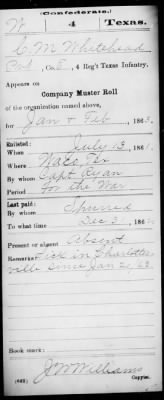 (Confederate.)
W 4 Texas.
C. M. Whitehead
Co. E, 4 Reg't Texas Infantry.
Appears on
Company Muster Roll
of the organization named above,
for Jan & Feb, 186
Enlisted:
When July 13, 1861.
Where Waco
By whom Capt Ryan
Period For the War
Last paid:
By whom
To what time Dec 31, 186
Present or absent Absent
Remarks: Sick in Charlottes
ville since Jan
Book mark:
J W Williams
(642) Copyist.